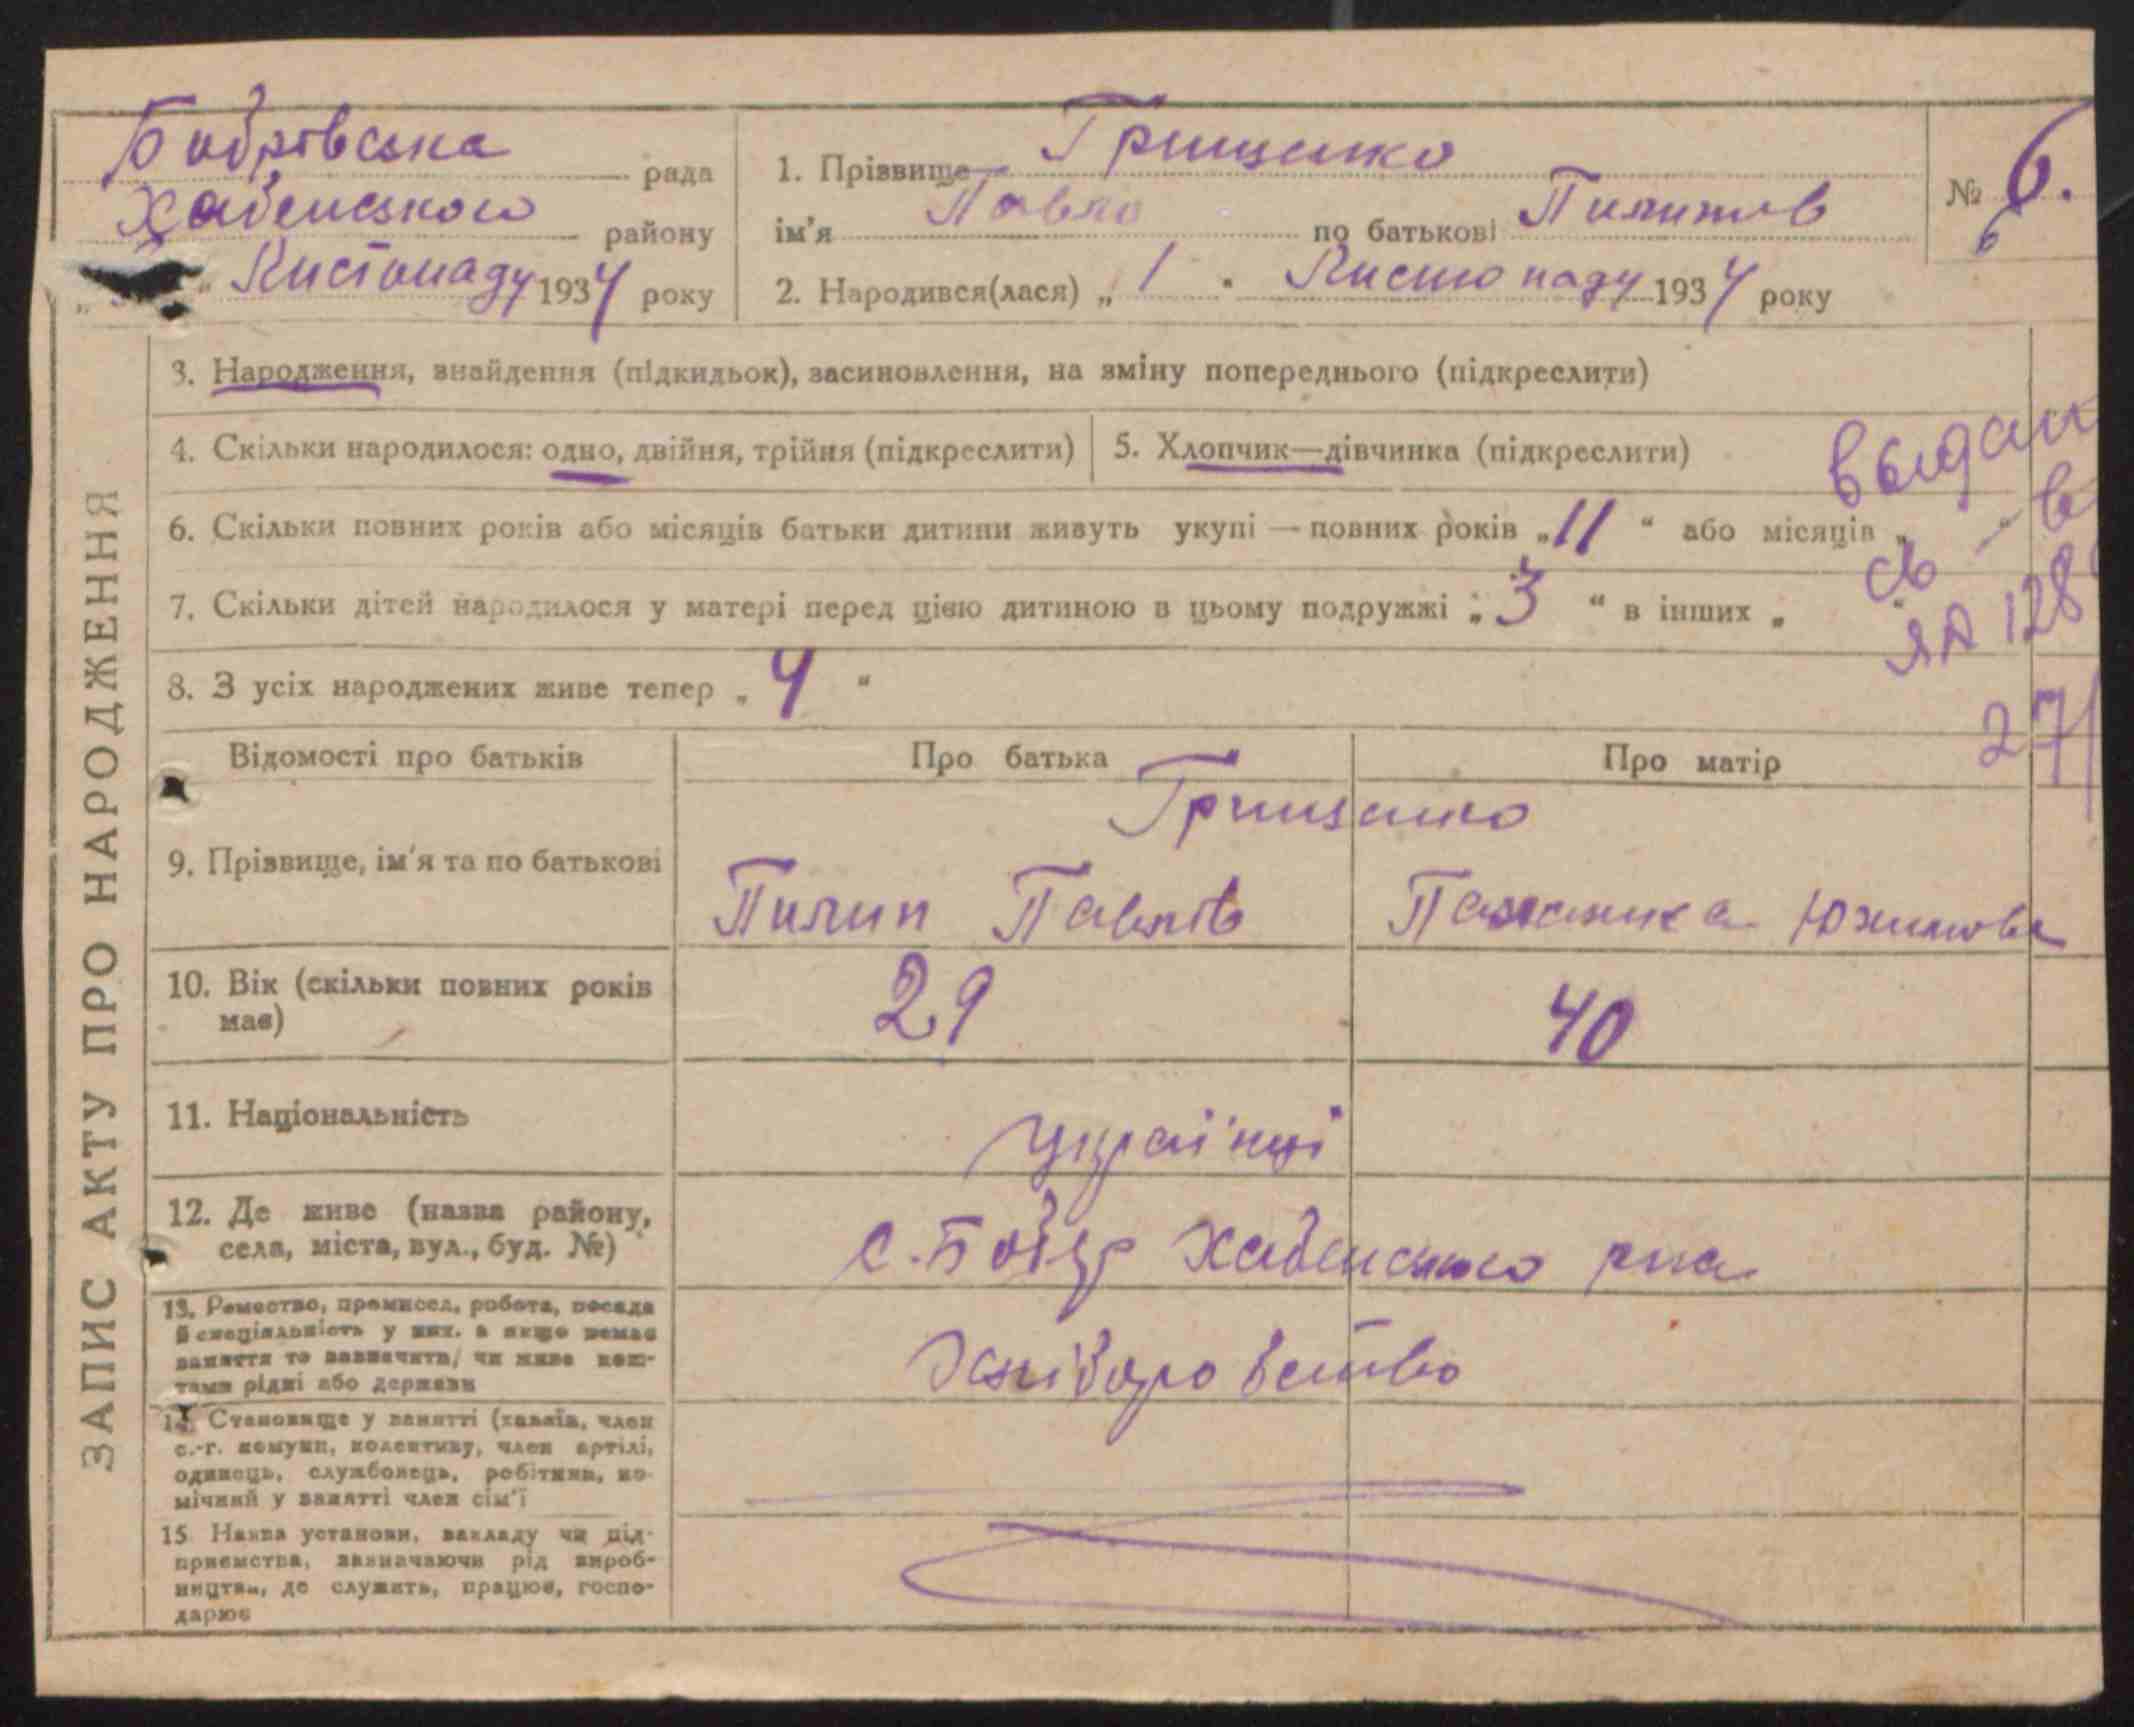 Бобрівська рада
Хабенського району
" Листопаду 1934 року
1. Прізвище Грищенко
ім'я Павло по батькові Пилипів
№ 6.
6
2. Народився(лася) „1" Листопаду 1934 року
ЗАПИС АКТУ ПРО НАРОДЖЕННЯ
3. Народження, знайдення (підкидьок), засиновлення, на зміну попереднього (підкреслити)
4. Скільки народилося: одно, двійня, трійня (підкреслити)
5. Хлопчик—дівчинка (підкреслити)
6. Скільки повних років або місяців батьки дитини живуть укупі — повних років „11" або місяців „ "
7. Скільки дітей народилося у матері перед цією дитиною в цьому подружжі „3" в інших „ "
8. З усіх народжених живе тепер „4"
выдан
св - в
ЯА 128
27/
Відомості про батьків
Про батька
Про матір
9. Прізвище, ім'я та по батькові
Грищенко
Пилип Павлів
10. Вік (скільки повних років
має)
29
40
11. Національність
Українці
12. Де живе (назва району,
села, міста, вул., буд. №)
с. Бобер Хабенського р-на
13. Ремество, промисел, робота, посада
й спеціяльність у них, а якщо немає
заняття то зазначити, чи живе кош-
тами рідні або держави
Хліборобство
14. Становище у занятті (хазяїн, член
с.-г. комуни, колективу, член артілі,
одинець, службовець, робітник, по-
мічний у занятті член сім'ї
15 Назва установи, закладу чи під-
приємства, зазначаючи рід вироб-
ництва, де служить, працює, госпо-
дарює